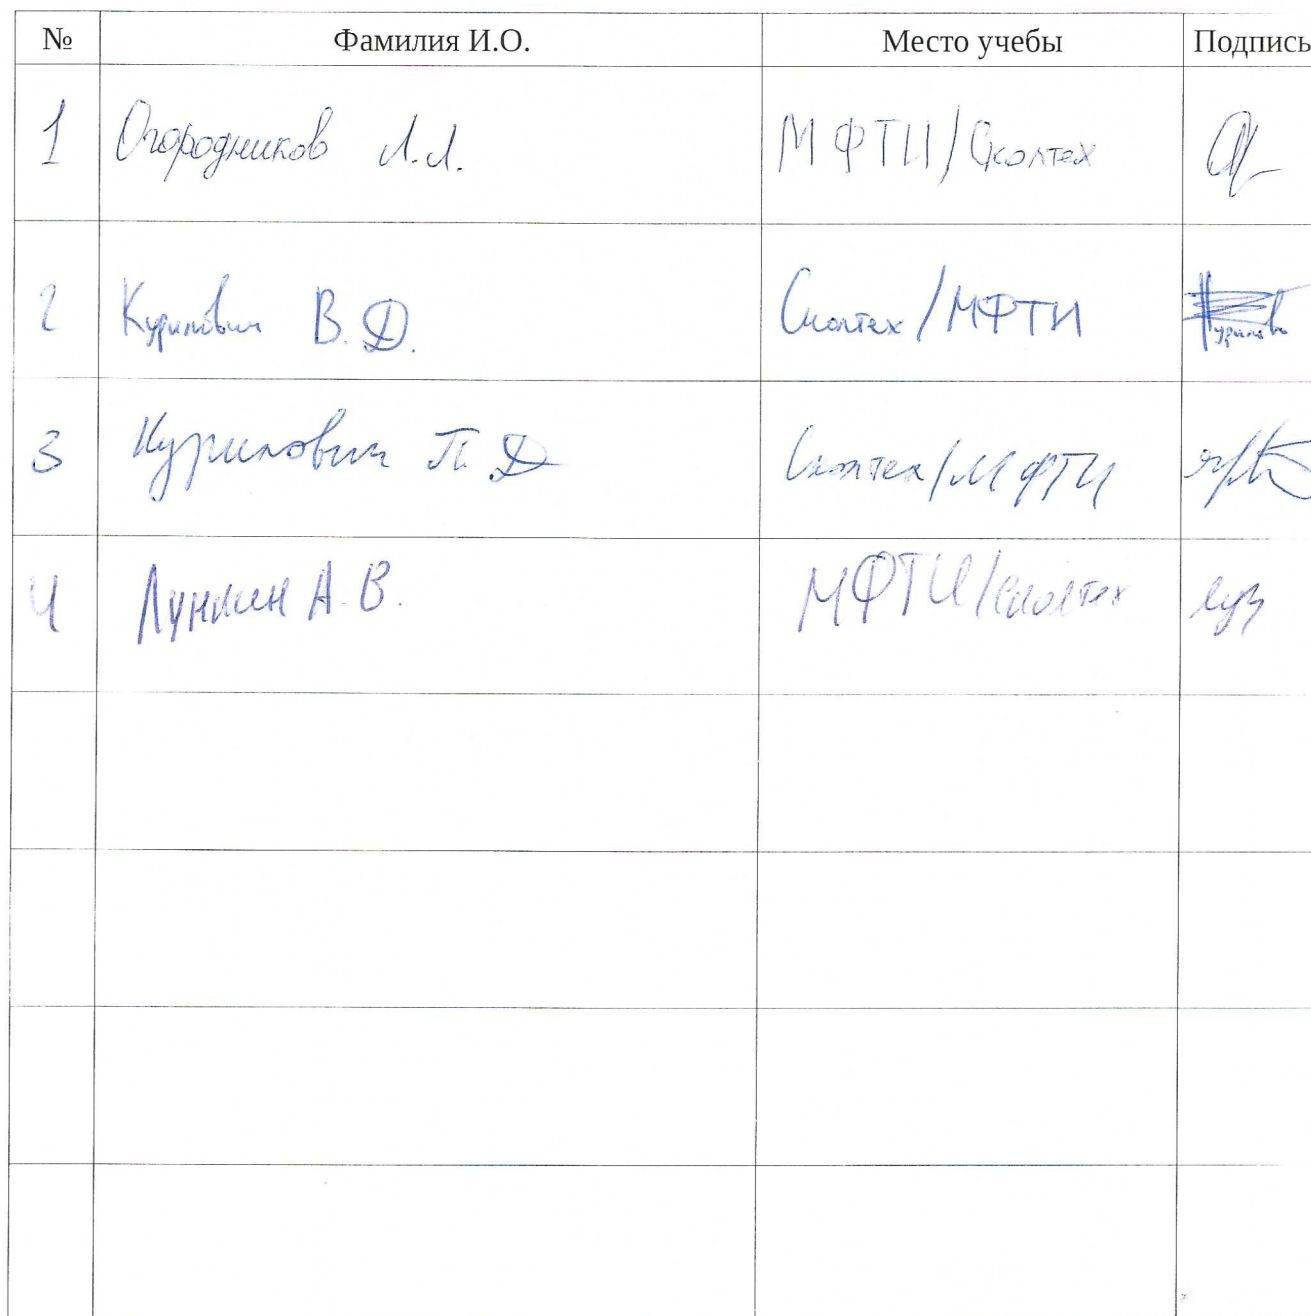 № Фамилия И.О. Место учебы Подпись
1 Огородников Л.Л. МФТИ/Сколтех
2 Курилович В.Д. Сколтех/МФТИ
3 Курилович П.Д Сколтех/МФТИ
4 Лункин А.В. МФТИ/Сколтех